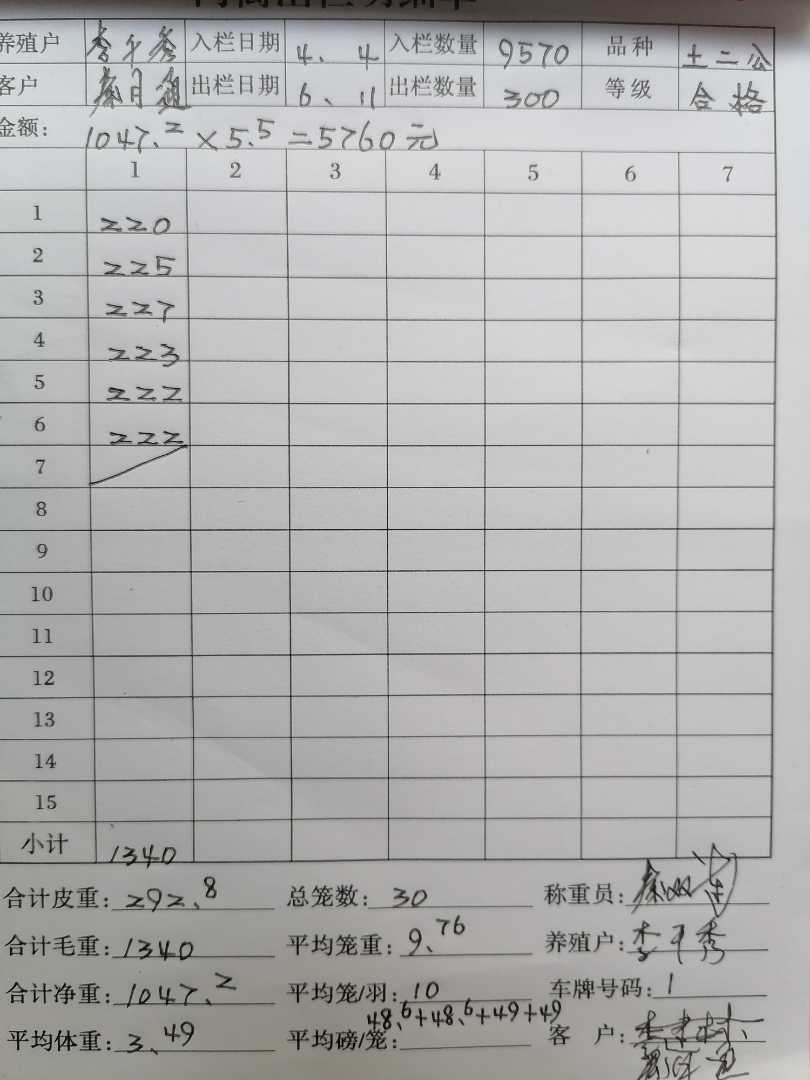 养殖户 李千秀 入栏日期 4、4 入栏数量 9570 品种 土二公
客户 出栏日期 6、11 出栏数量 300 等级 合格
金额: 1047.2×5.5=5760元
1 2 3 4 5 6 7
1 220
2 225
3 227
4 223
5 222
6 222
7
8
9
10
11
12
13
14
15
小计 1340
合计皮重: 292.8 总笼数: 30 称重员:
合计毛重: 1340 平均笼重: 9.76 养殖户: 李千秀
合计净重: 1047.2 平均笼/羽: 10 车牌号码: 1
平均体重: 3.49 平均磅/笼: 48.6+48.6+49+49 客 户: